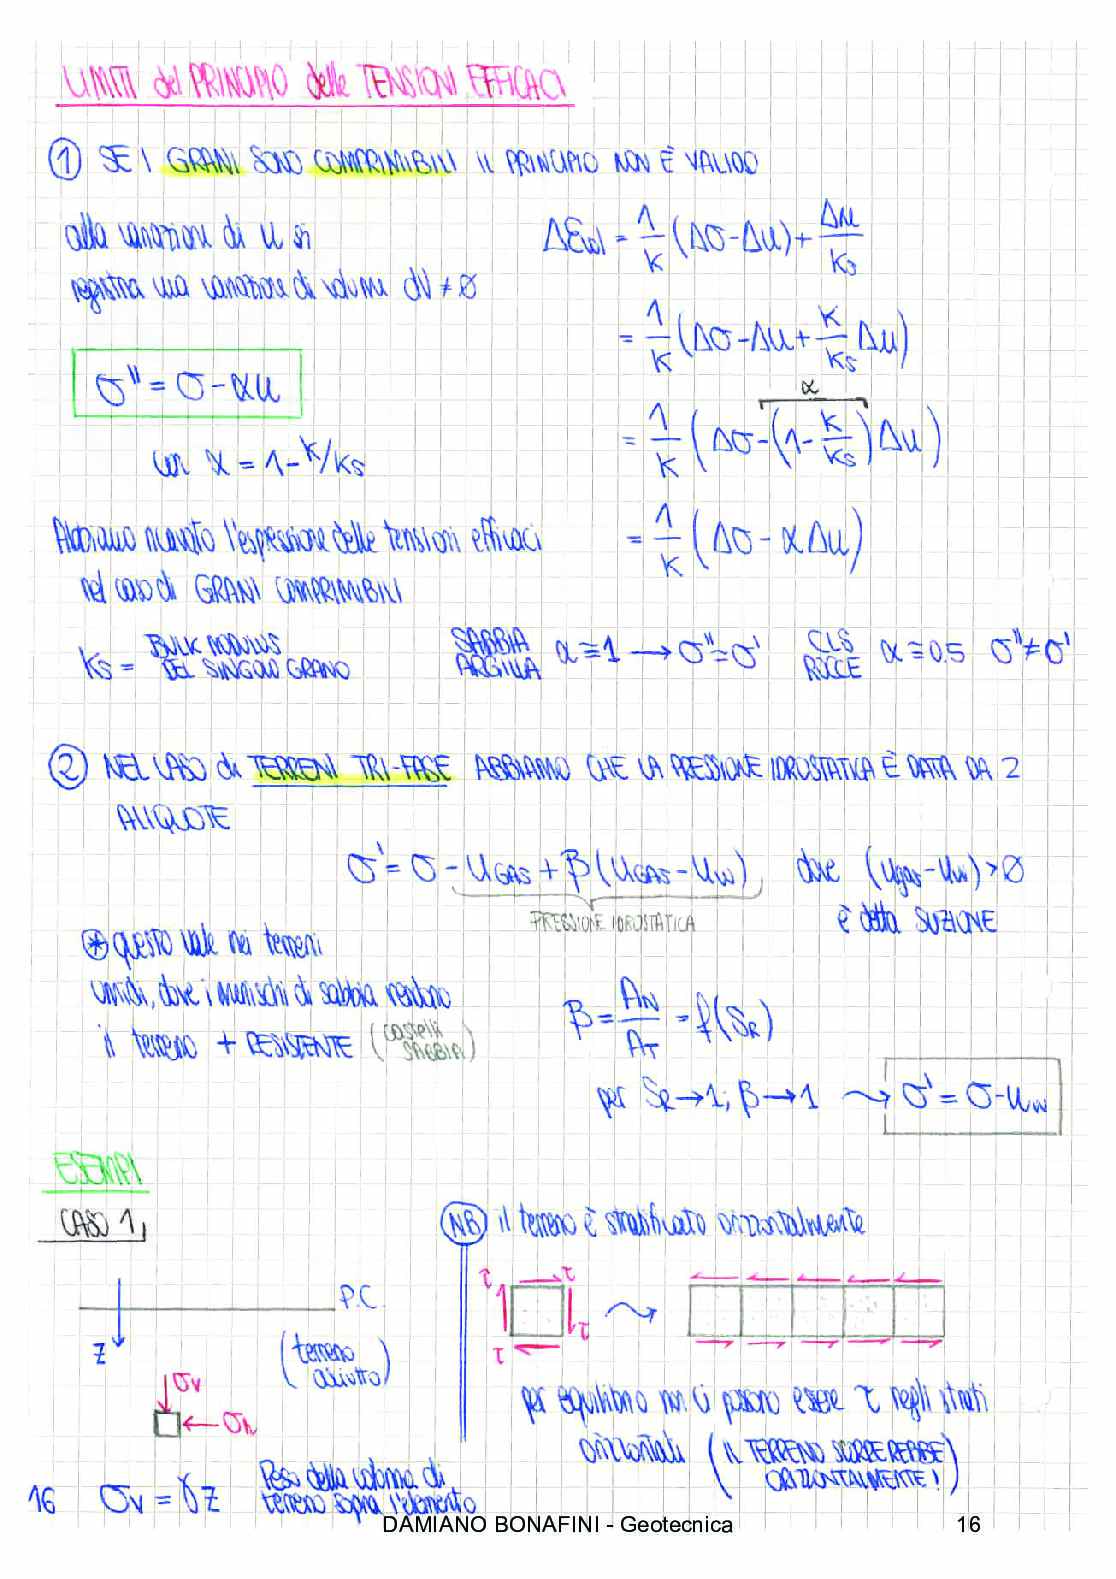 LIMITI del PRINCIPIO delle TENSIONI EFFICACI
① SE I GRANI SONO COMPRIMIBILI IL PRINCIPIO NON È VALIDO
alla variazione di u si
registra una variazione di volume dV ≠ 0
Δεvol = 1/K (Δσ - Δu) + Δu/Ks
= 1/K (Δσ - Δu + K/Ks Δu)
σ'' = σ - αu
α
= 1/K (Δσ - (1 - K/Ks) Δu)
con α = 1 - K/Ks
= 1/K (Δσ - αΔu)
Abbiamo ricavato l'espressione delle tensioni efficaci
nel caso di GRANI COMPRIMIBILI
Ks = BULK MODULUS
DEL SINGOLO GRANO
SABBIA
ARGILLA
α ≅ 1 → σ'' = σ'
CLS
ROCCE
α ≅ 0.5 σ'' ≠ σ'
② NEL CASO di TERRENI TRI-FASE ABBIAMO CHE LA PRESSIONE IDROSTATICA È DATA DA 2
ALIQUOTE
σ' = σ - uGAS + β(uGAS - uw) dove (ugas - uw) > 0
PRESSIONE IDROSTATICA
è detta SUZIONE
⊛ questo vale nei terreni
umidi, dove i menischi di sabbia rendono
il terreno + RESISTENTE (castelli
SABBIA)
β = AN/AT = f(SR)
per SR → 1; β → 1 ⇝ σ' = σ - uw
ESEMPI
CASO 1,
P.C.
z
(terreno
asciutto)
σv
σh
σv = γz
Peso della colonna di
terreno sopra l'elemento
NB il terreno è stratificato orizzontalmente
τ τ
τ
τ
per equilibrio non ci possono essere τ negli strati
orizzontali (IL TERRENO SCORREREBBE
ORIZZONTALMENTE!)
16
DAMIANO BONAFINI - Geotecnica 16